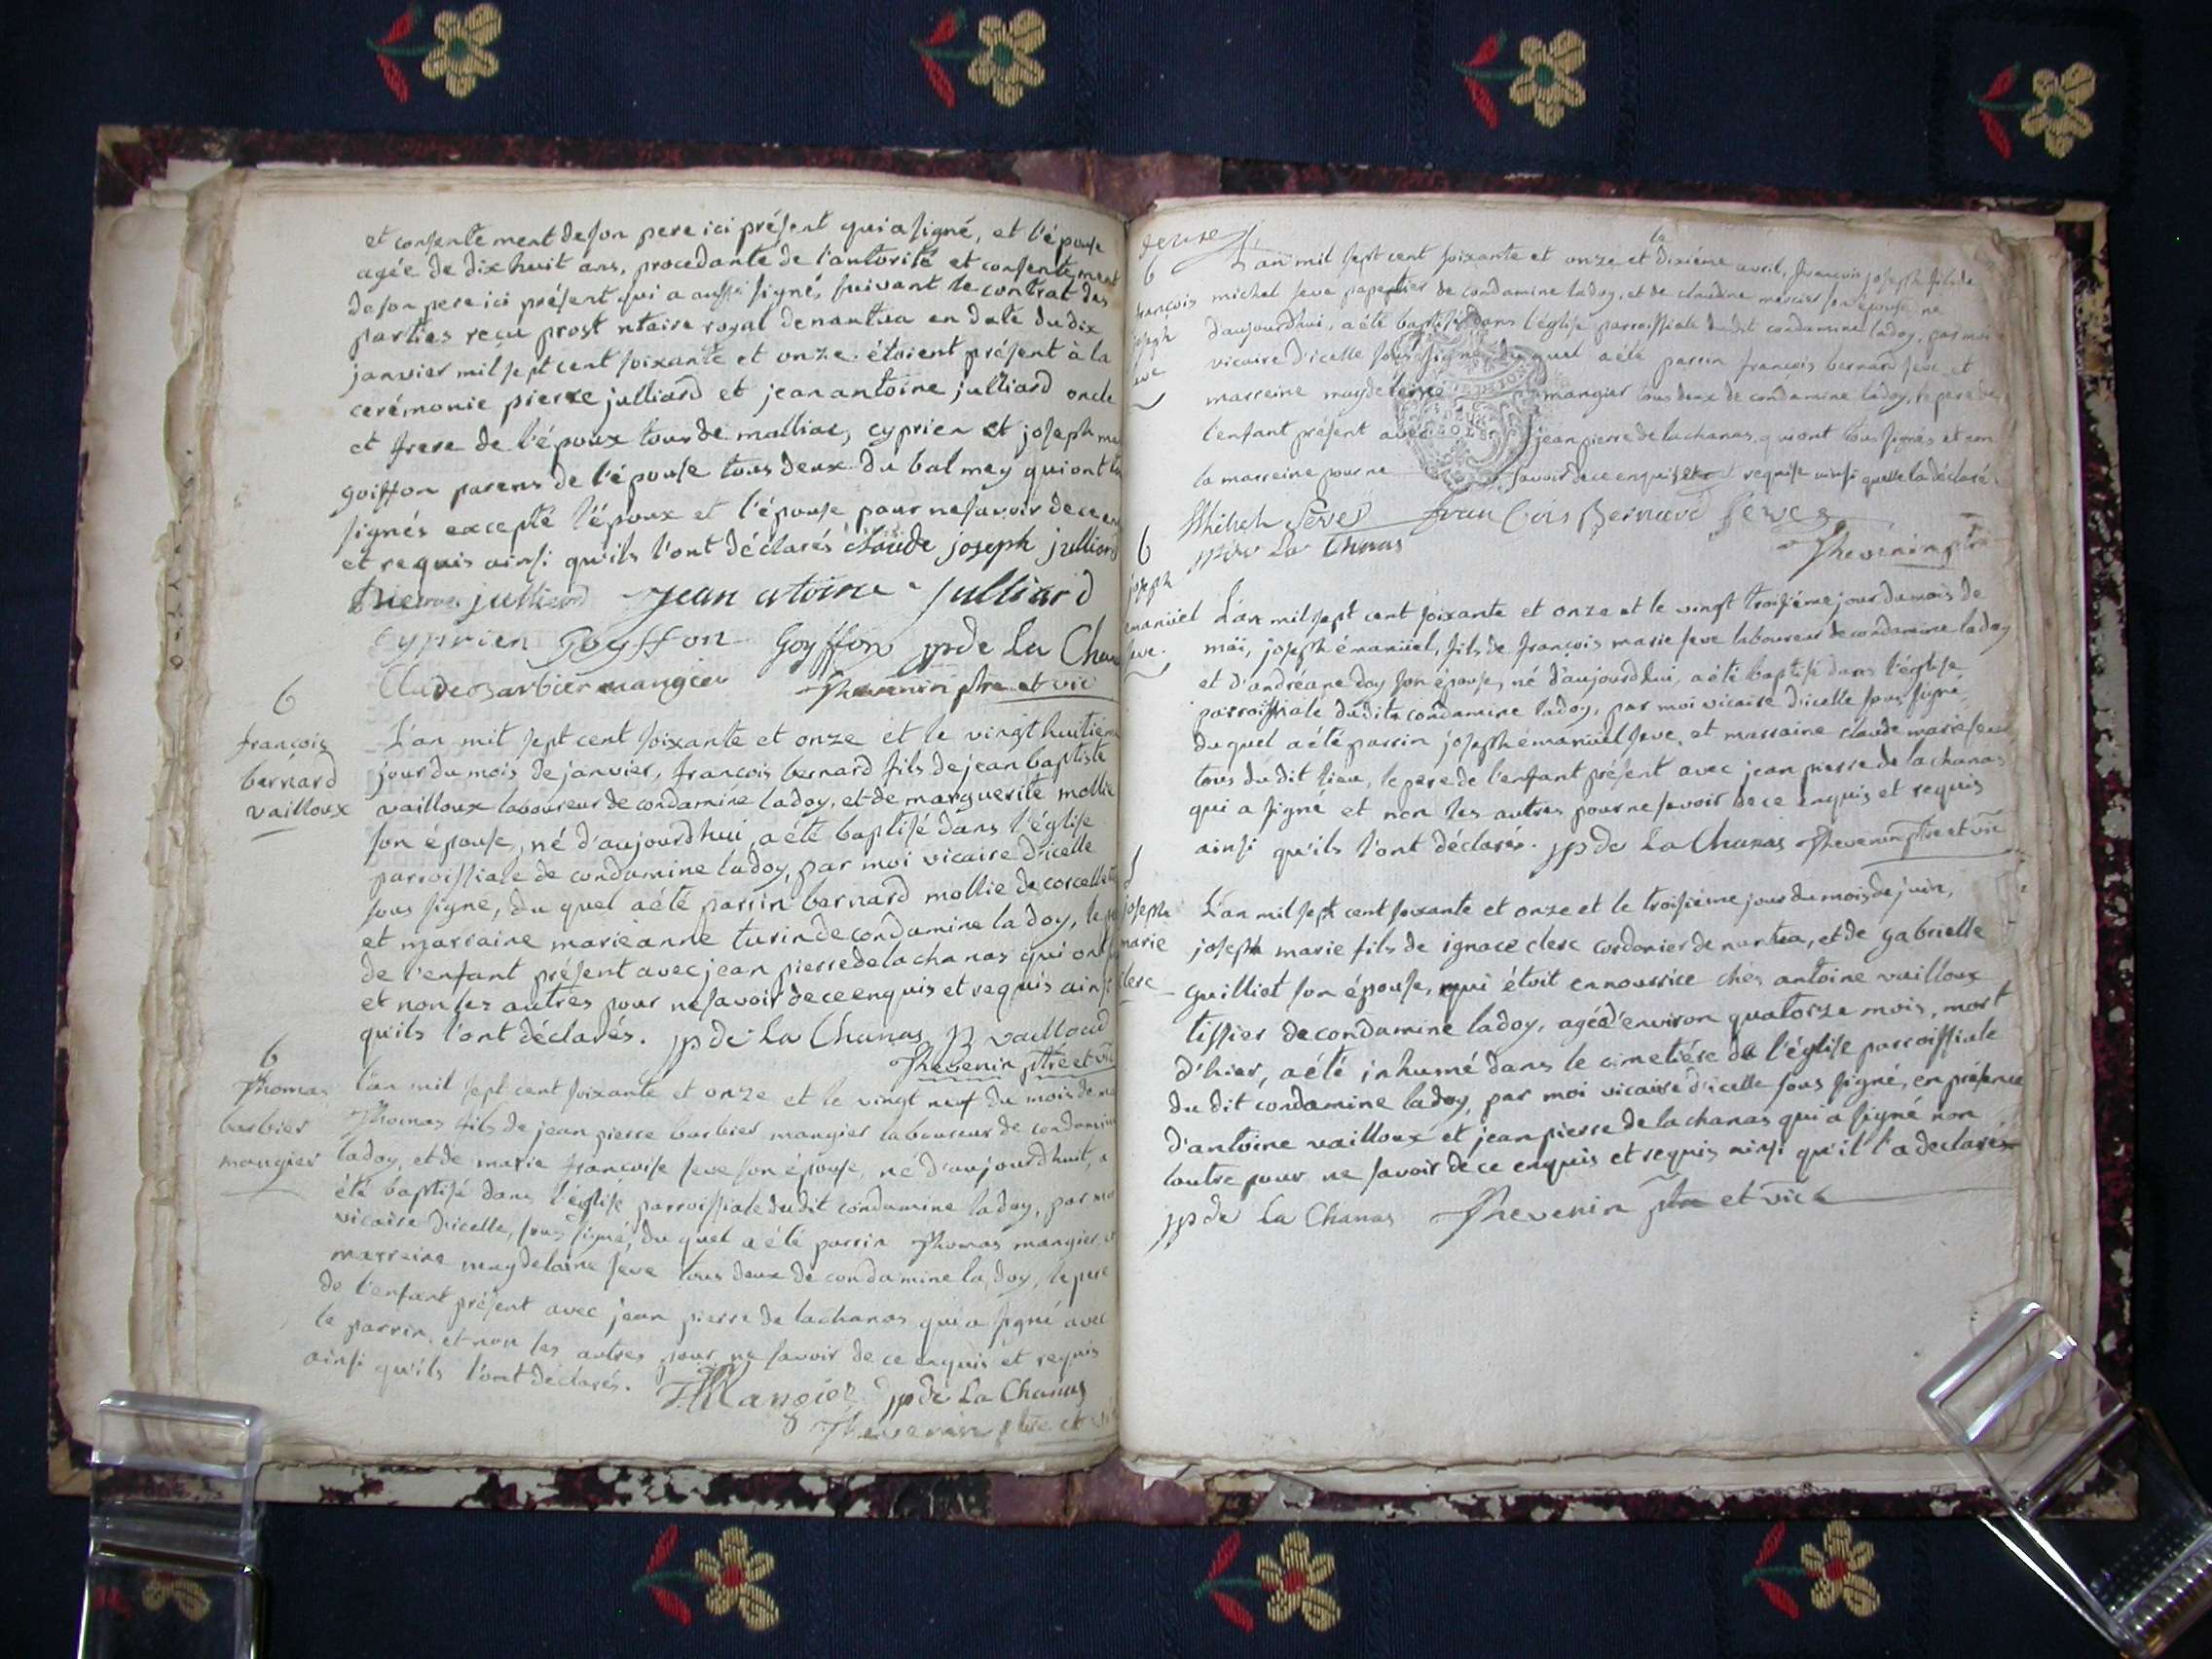 et consentement de son pere ici présent qui a signé, et l'épouse
agée de dix huit ans, procedante de l'autorité et consentement
de son pere ici présent qui a aussi signés suivant le contrat des
parties reçu prost ntaire royal de nantua en date du dix
janvier mil sept cent soixante et onze. étoient présent à la
cerémonie pierre julliard et jean antoine julliard oncle
et frere de l'époux tous de malliat, cyprien et joseph
goiffon parens de l'épouse tous deux du balmey qui ont
signés excepté l'époux et l'épouse pour ne savoir de ce
et requis ainsi qu'ils l'ont déclarés claude joseph julliard
Pierre julliard jean atoine julliard
cyprien Goyffon Goyffon jp de La Chanas
Claude barbier mangier Thevenin ptre et vic
6
françois
bernard
vailloux
L'an mil sept cent soixante et onze et le vingt huitieme
jour du mois de janvier, françois bernard fils de jean baptiste
vailloux laboureur de condamine ladoy, et de marguerite mollie
son épouse, né d'aujourd'hui, a été baptisé dans l'église
parroissiale de condamine ladoy, par moi vicaire d'icelle
sous signé, du quel a été parrin bernard mollie de corcelle
et marraine marieanne turin de condamine ladoy, le
de l'enfant présent avec jean pierre de lachanas qui ont
et non les autres pour ne savoir de ce enquis et requis ainsi
qu'ils l'ont déclarés. jp de La Chanas B vailloud
Thevenin ptre et vic
6
Thomas
barbier
mangier
L'an mil sept cent soixante et onze et le vingt neuf du mois de
Thomas fils de jean pierre barbier mangier laboureur de condamine
ladoy, et de marie françoise seve son épouse, né d'aujourd'hui, a
été baptisé dans l'église parroissiale dudit condamine ladoy, par moi
vicaire d'icelle, sous signé, du quel a été parrin Thomas mangier, et
marreine magdelaine seve tous deux de condamine ladoy, le pere
de l'enfant présent avec jean pierre de lachanas qui a signé avec
le parrin et non les autres pour ne savoir de ce enquis et requis
ainsi qu'ils l'ont déclarés. T Mangier jp de La Chanas
Thevenin ptre et vic
6
françois
joseph
seve
L'an mil sept cent soixante et onze et le dixiéme avril, françois joseph fils de
michel seve papetier de condamine ladoy, et de claudine mercier son épouse, né
d'aujourd'hui, a été baptisé dans l'église parroissiale dudit condamine ladoy, par moi
vicaire d'icelle sous signé, du quel a été parrin françois bernard seve et
marreine magdeleine mangier tous deux de condamine ladoy, le pere de
l'enfant présent avec jean pierre de lachanas, qui ont tous signés et non
la marreine pour ne savoir de ce enquise et requise ainsi quelle la déclaré.
Mihel Seve françois Bernard Seve
jp de La Chanas Thevenin ptre
6
joseph
emanüel
seve.
L'an mil sept cent soixante et onze et le vingt troisiéme jour du mois de
mäi, joseph émanüel, fils de françois marie seve laboureur de condamine ladoy
et d'andréane doy son épouse, né d'aujourd'hui, a été baptisé dans l'église
parroissiale dudit condamine ladoy, par moi vicaire d'icelle sous signé,
du quel a été parrin joseph émanüel seve, et marraine claude marie seve
tous du dit lieu, le pere de l'enfant présent avec jean pierre de lachanas
qui a signé et non les autres pour ne savoir de ce enquis et requis
ainsi qu'ils l'ont déclarés. jp de La Chanas Thevenin ptre et vic
joseph
marie
clerc
L'an mil sept cent soixante et onze et le troisiéme jour du mois de juin,
joseph marie fils de ignace clerc cordonier de nantua, et de gabrielle
guilliot son épouse, qui étoit en nourrice chés antoine vailloux
tissier de condamine ladoy, agé d'environ quatorze mois, mort
d'hier, a été inhumé dans le cimetiére de l'église parroissiale
du dit condamine ladoy, par moi vicaire d'icelle sous signé, en présence
d'antoine vailloux et jean pierre de lachanas qui a signé non
l'autre pour ne savoir de ce enquis et requis ainsi qu'il l'a declaré
jp de La Chanas Thevenin ptre et vic